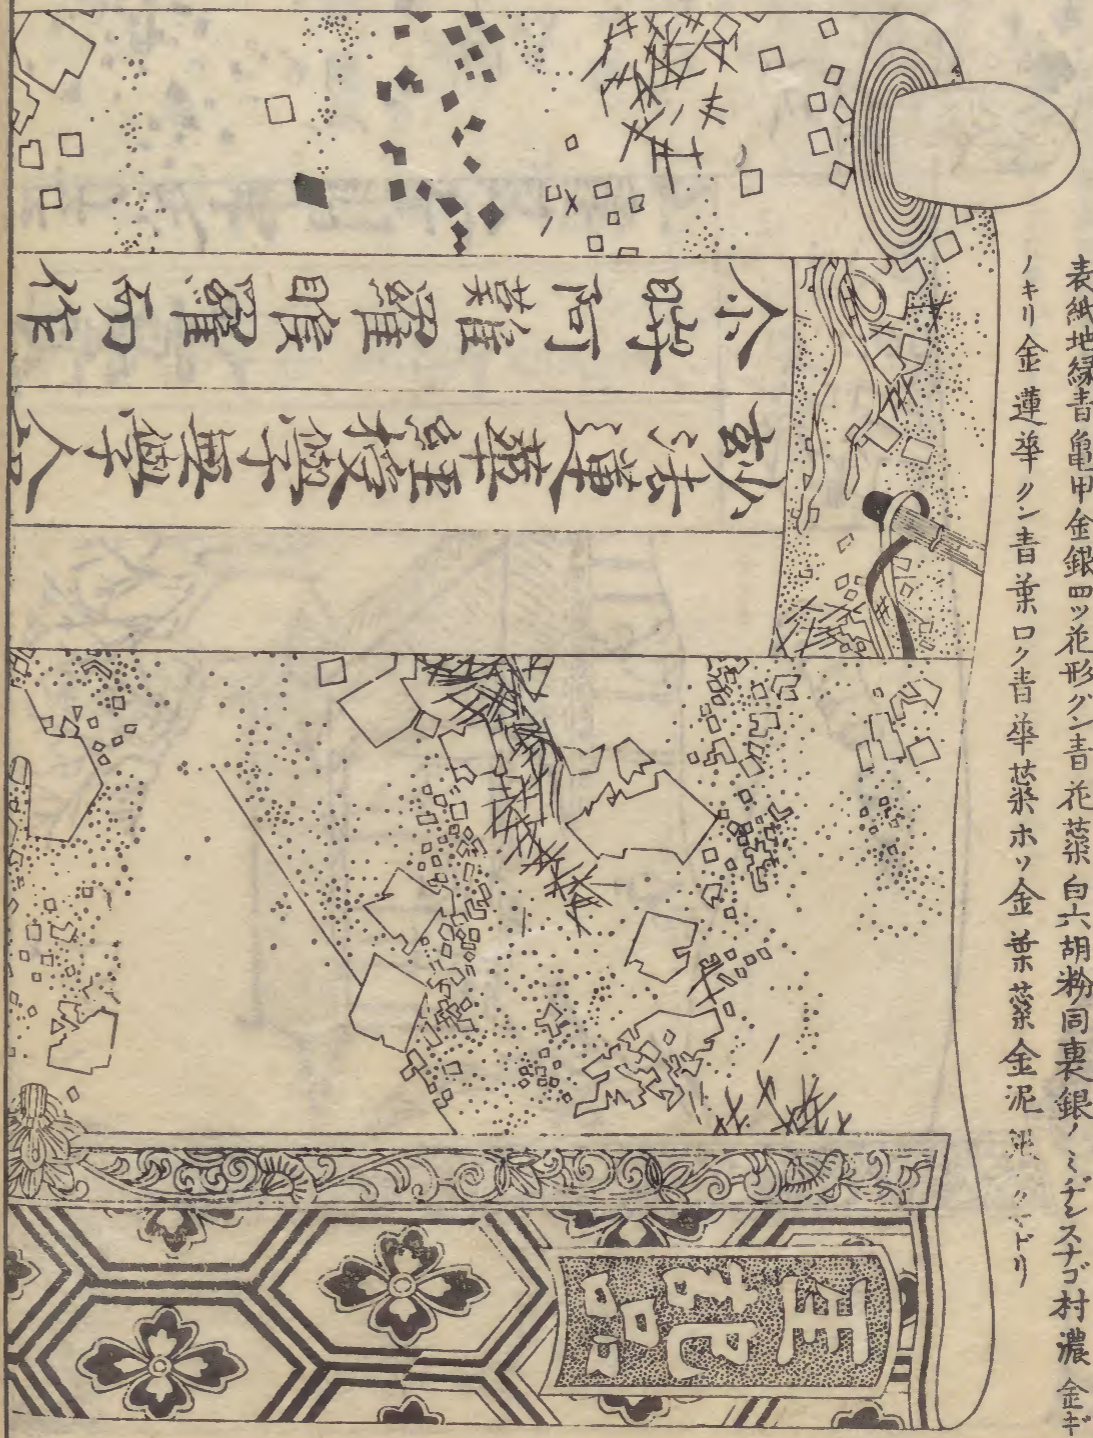 表紙地緑青亀甲金銀四ッ花形グン青花蘂白六胡粉同裏銀ノミヂンスナゴ村濃金ギ
ノキリ金蓮華クン青葉ロク青華蘂ホソ金葉蘂金泥
妙法蓮華經授學無學人
尒時阿難羅睺羅而作